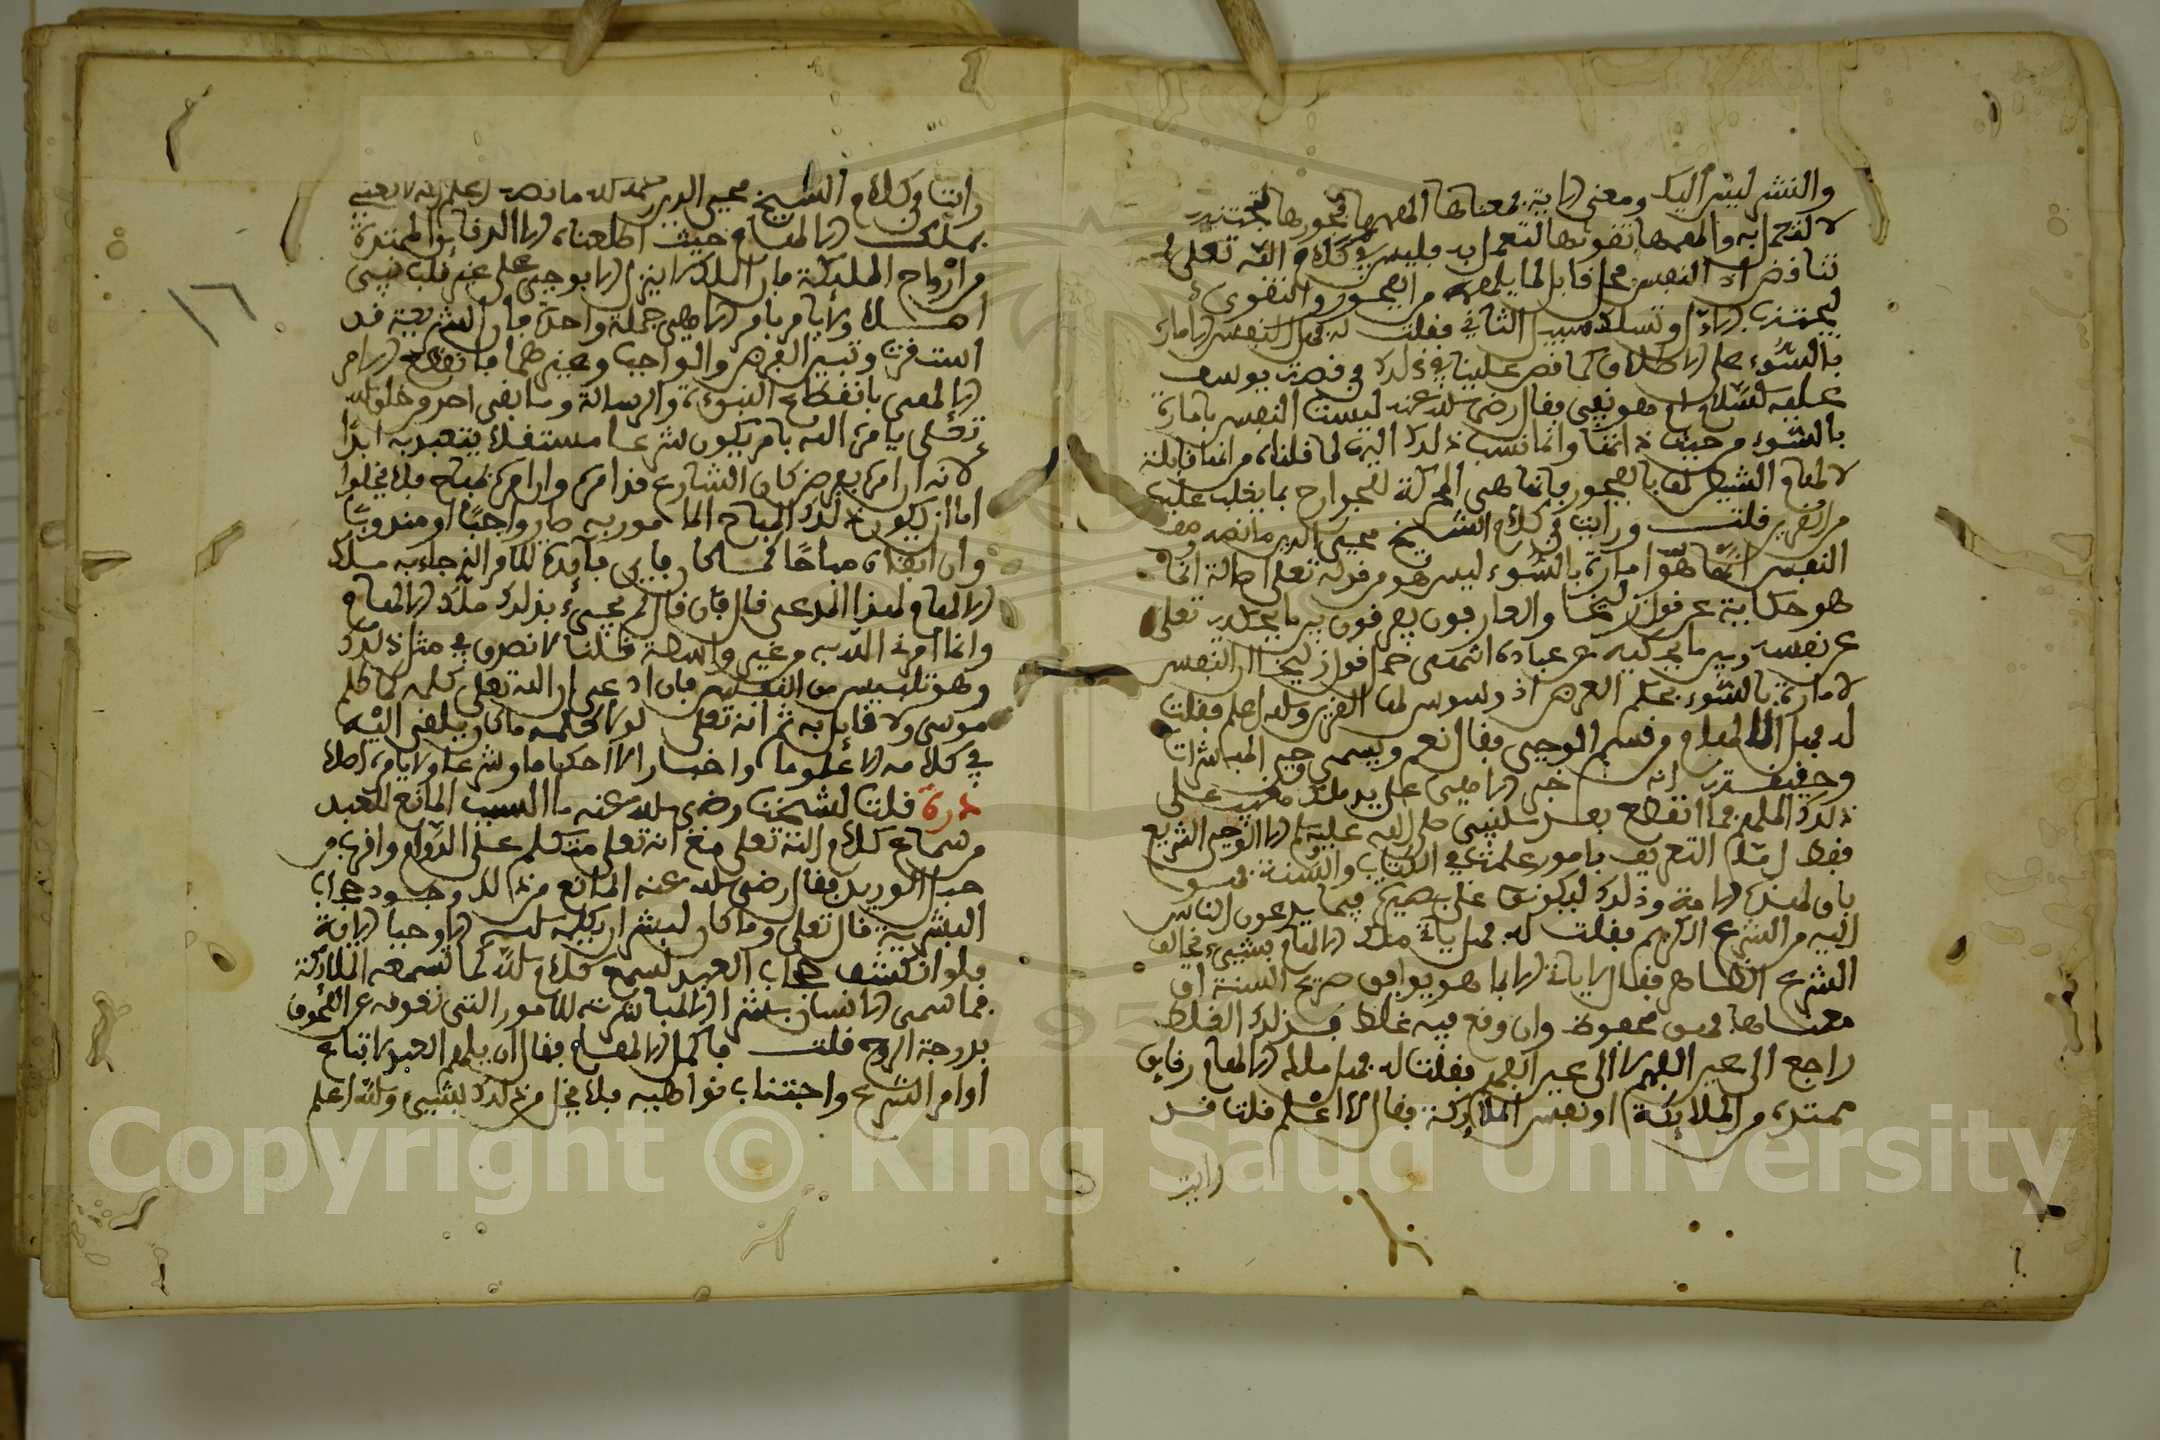 والشر ليس اليك ومعنى الاية بمعناها الهمها فجورها لتجتنبه
لا لتعمل به والهمها تقواها لتعمل به فليس في كلام الله تعلى
تناقض اذ النفس محل قابل لما يلهمه من الفجور والتقوى
ليجتنب الاول وتسلك سبيل الثاني فقلت له فهل النفس امارة
بالسوء على الاطلاق كما قص علينا في ذلك في قصة يوسف
عليه السلام ام هو نفي فقال رضي الله عنه ليست النفس بامارة
بالسوء من حيث ذاتها وانما نسب ذلك اليها لما قلناه من انها قابلة
لالهام الشيطان بالفجور فانها هي المحركة للجوارح بما يغلب عليها
من القرين قلت ورايت في كلام الشيخ محيي الدين ما نصه وصف
النفس انها امارة بالسوء ليس هو من قوله تعلى اصالة انما
هو حكاية عن قول زليخا والعارفون يفرقون بين ما يحكيه تعلى
عن نفسه وبين ما يحكيه عن عباده انتهى قول زليخا ان النفس
لامارة بالسوء اذ وسوس لها القرين والله اعلم فقلت
له فهل الالهام من قسم الوحي فقال نعم ويسمى وحي المبشرات
وحقيقته انه خبر الاهي على يد ملك مغيب على
ذلك الملهم فما انقطع بعد النبي صلى الله عليه وسلم الا الوحي الشريع
فقط اما التعريف بامور علمت في الكتاب والسنة فهو
باق لهذه الامة وذلك ليكونوا على بصيرة فيما يدعون الناس
اليه من الشرع الكريم فقلت له فهل ياتي ملك الالهام بشيء يخالف
الشرع الظاهر فقال لا ياتي الا بما هو يوافق صريح السنة او
معناها فهو محفوظ وان وقع فيه غلط فذلك الغلط
راجع الى غير الملهم لا الى عين الفهم فقلت له فهل ملك الالهام رقايق
ممتدة من الملائكة او نفس الملائكة فقال لا اعلم قلت قد
رايت
رايت في كلام الشيخ محيي الدين رحمه الله ما نصه اعلم انه لا نعني
بملك الالهام حيث اطلقناه الا الدقايق الممتدة
من ارواح الملئكة فان الملك لا ينزل الا بوحي على غير قلب نبي
اصلا ولا يامر بامر الاهي جملة واحدة فان الشريعة قد
استقرت وتبين الفرض والواجب وغيرهما فانقطع الامر
الالهي بانقطاع النبوة والرسالة وما بقي احد من خلق الله
تعلى يامره الله بامر يكون شرعا مستقلا يتعبد به ابدا
لانه ان امره بفرض كان الشارع قد امره وان امره بمباح فلا يخلو
اما ان يكون ذلك المباح المامور به صار واجبا او مندوبا
وان ابقاه مباحا كما كان فاي فائدة للامر الذي جاء به ملك
الالهام لهذا المدعي قال فان قال لم يجيء بذلك ملك الالهام
وانما امرني الله به من غير واسطة قلنا لا نصدق في مثل ذلك
وهو تلبيس من النفس فان ادعى ان الله تعلى كلمه كما كلم
موسى ولا قايل به ثم انه تعلى لو كلمه ما كان يلقي اليه
في كلامه الا علوما واخبارا لا احكاما وشرعا ولا يامره اصلا
درة قلت لشيخنا رضي الله عنه ما السبب المانع للعبد
من سماع كلام الله تعلى مع انه تعلى متكلم على الدوام واقرب من
حبل الوريد فقال رضي الله عنه المانع من ذلك وجود حجاب
البشرية قال تعلى وما كان لبشر ان يكلمه الله الا وحيا الاية
فلو انكشف حجاب العبد لسمع كلام الله كما تسمعه الملائكة
فما سمى الانسان بشرا الا لمباشرته للامور التي تعوقه عن اللحوق
بدرجة الروح قلت فما كمل الالهام فقال ان يلهم العبد اتباع
اوامر الشرع واجتناب نواهيه فلا يخل من ذلك بشيء والله اعلم